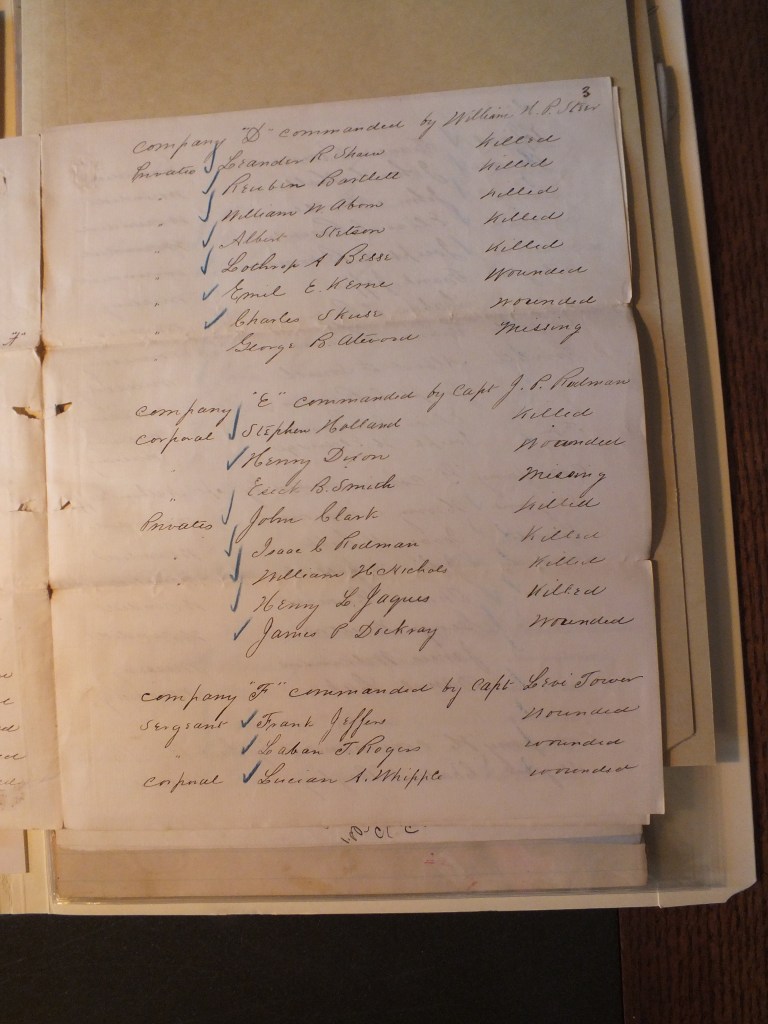 3
Company "D" commanded by William H. P. Steer
Privates Leander R. Shaw Killed
" Reuben Bartlett Killed
" William W Abom Killed
" Albert Stetson Killed
" Lothrop A Besse Killed
" Emel E. Kerne Wounded
" Charles Skuse Wounded
" George B Atwood Missing
Company "E" commanded by Capt J. P. Rodman
Corporal Stephen Holland Killed
" Henry Dixon Wounded
" B. Smith Missing
Privates John Clark Killed
" Isaac C Rodman Killed
" William H. Nichols Killed
" Henry L. Jaques Killed
" James P Dockray Wounded
Company "F" commanded by Capt Levi Tower
Sergeant Frank Jeffers Wounded
Laban T. Rogers wounded
Corporal Lucian A. Whipple wounded